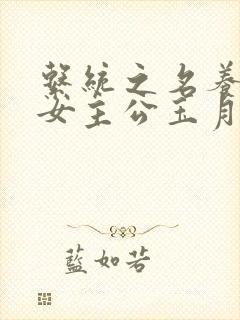 繫統之名養
女主公玉月
藍如若